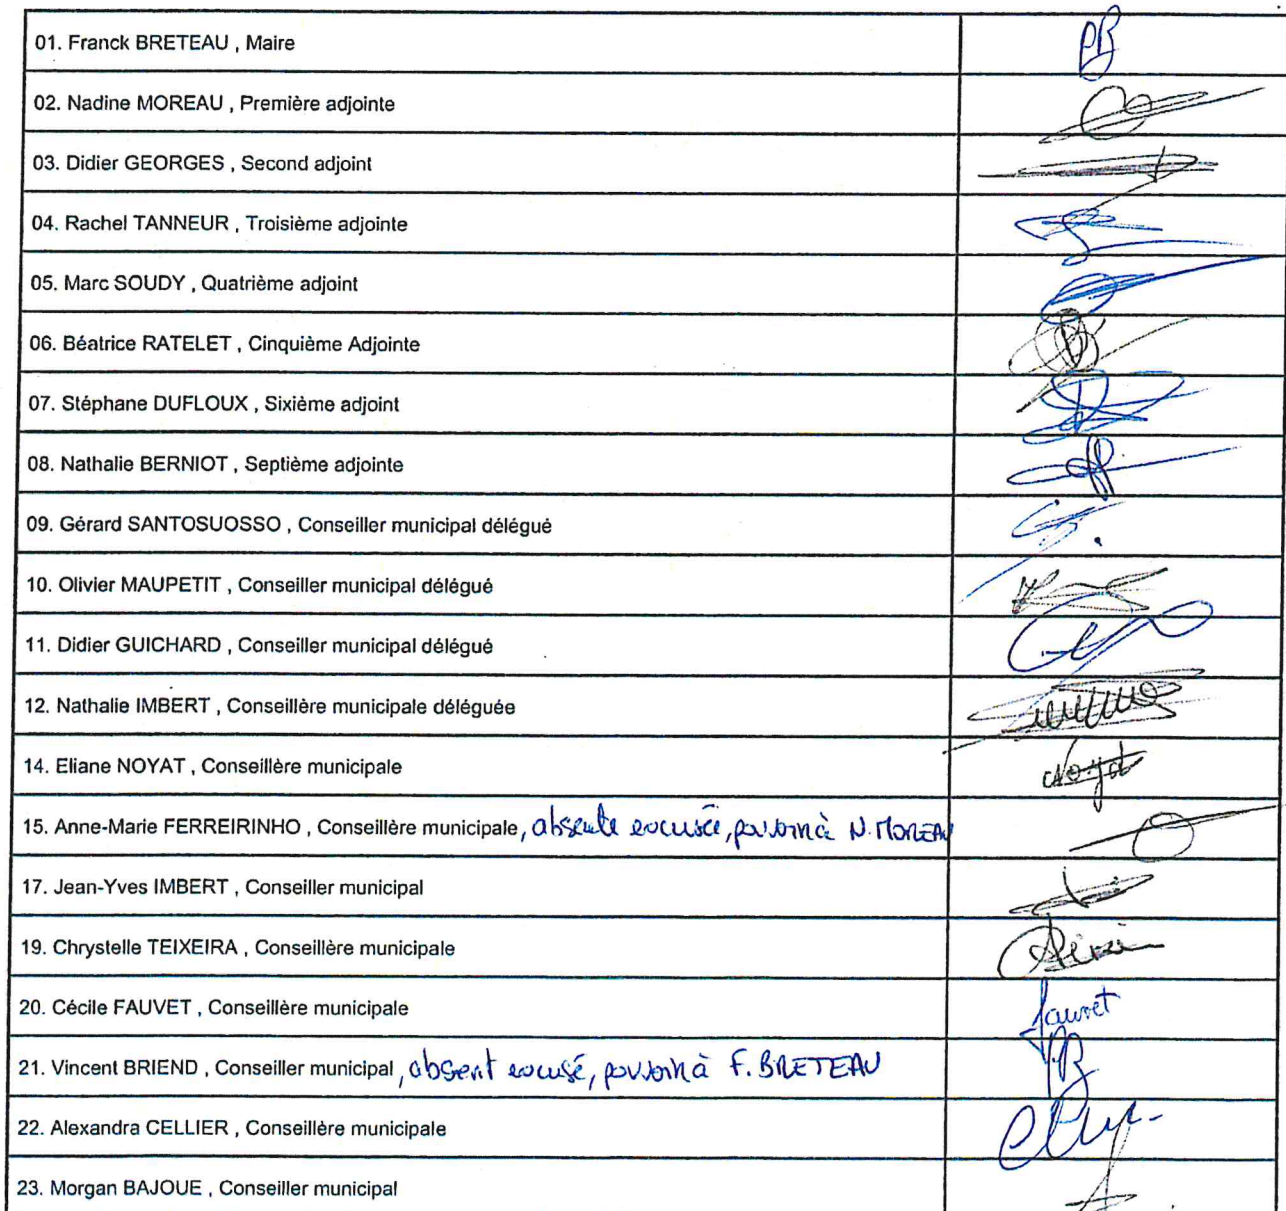 01. Franck BRETEAU , Maire
02. Nadine MOREAU , Première adjointe
03. Didier GEORGES , Second adjoint
04. Rachel TANNEUR , Troisième adjointe
05. Marc SOUDY , Quatrième adjoint
06. Béatrice RATELET , Cinquième Adjointe
07. Stéphane DUFLOUX , Sixième adjoint
08. Nathalie BERNIOT , Septième adjointe
09. Gérard SANTOSUOSSO , Conseiller municipal délégué
10. Olivier MAUPETIT , Conseiller municipal délégué
11. Didier GUICHARD , Conseiller municipal délégué
12. Nathalie IMBERT , Conseillère municipale déléguée
14. Eliane NOYAT , Conseillère municipale
15. Anne-Marie FERREIRINHO , Conseillère municipale, absente excusée, pouvoir à N. MOREAU
17. Jean-Yves IMBERT , Conseiller municipal
19. Chrystelle TEIXEIRA , Conseillère municipale
20. Cécile FAUVET , Conseillère municipale fauvet
21. Vincent BRIEND , Conseiller municipal, absent excusé, pouvoir à F. BRETEAU
22. Alexandra CELLIER , Conseillère municipale
23. Morgan BAJOUE , Conseiller municipal